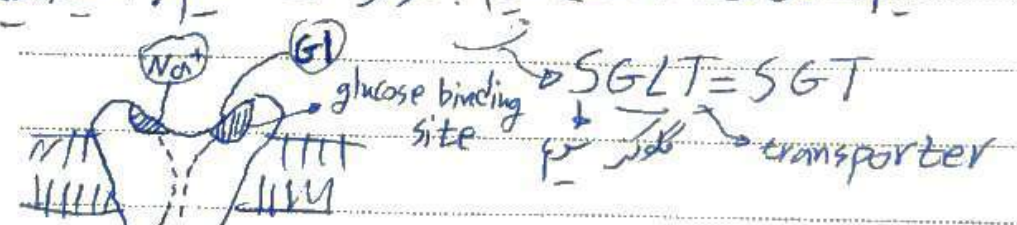 Na+ Gl
glucose binding SGLT = SGT
site گلوکز transporter